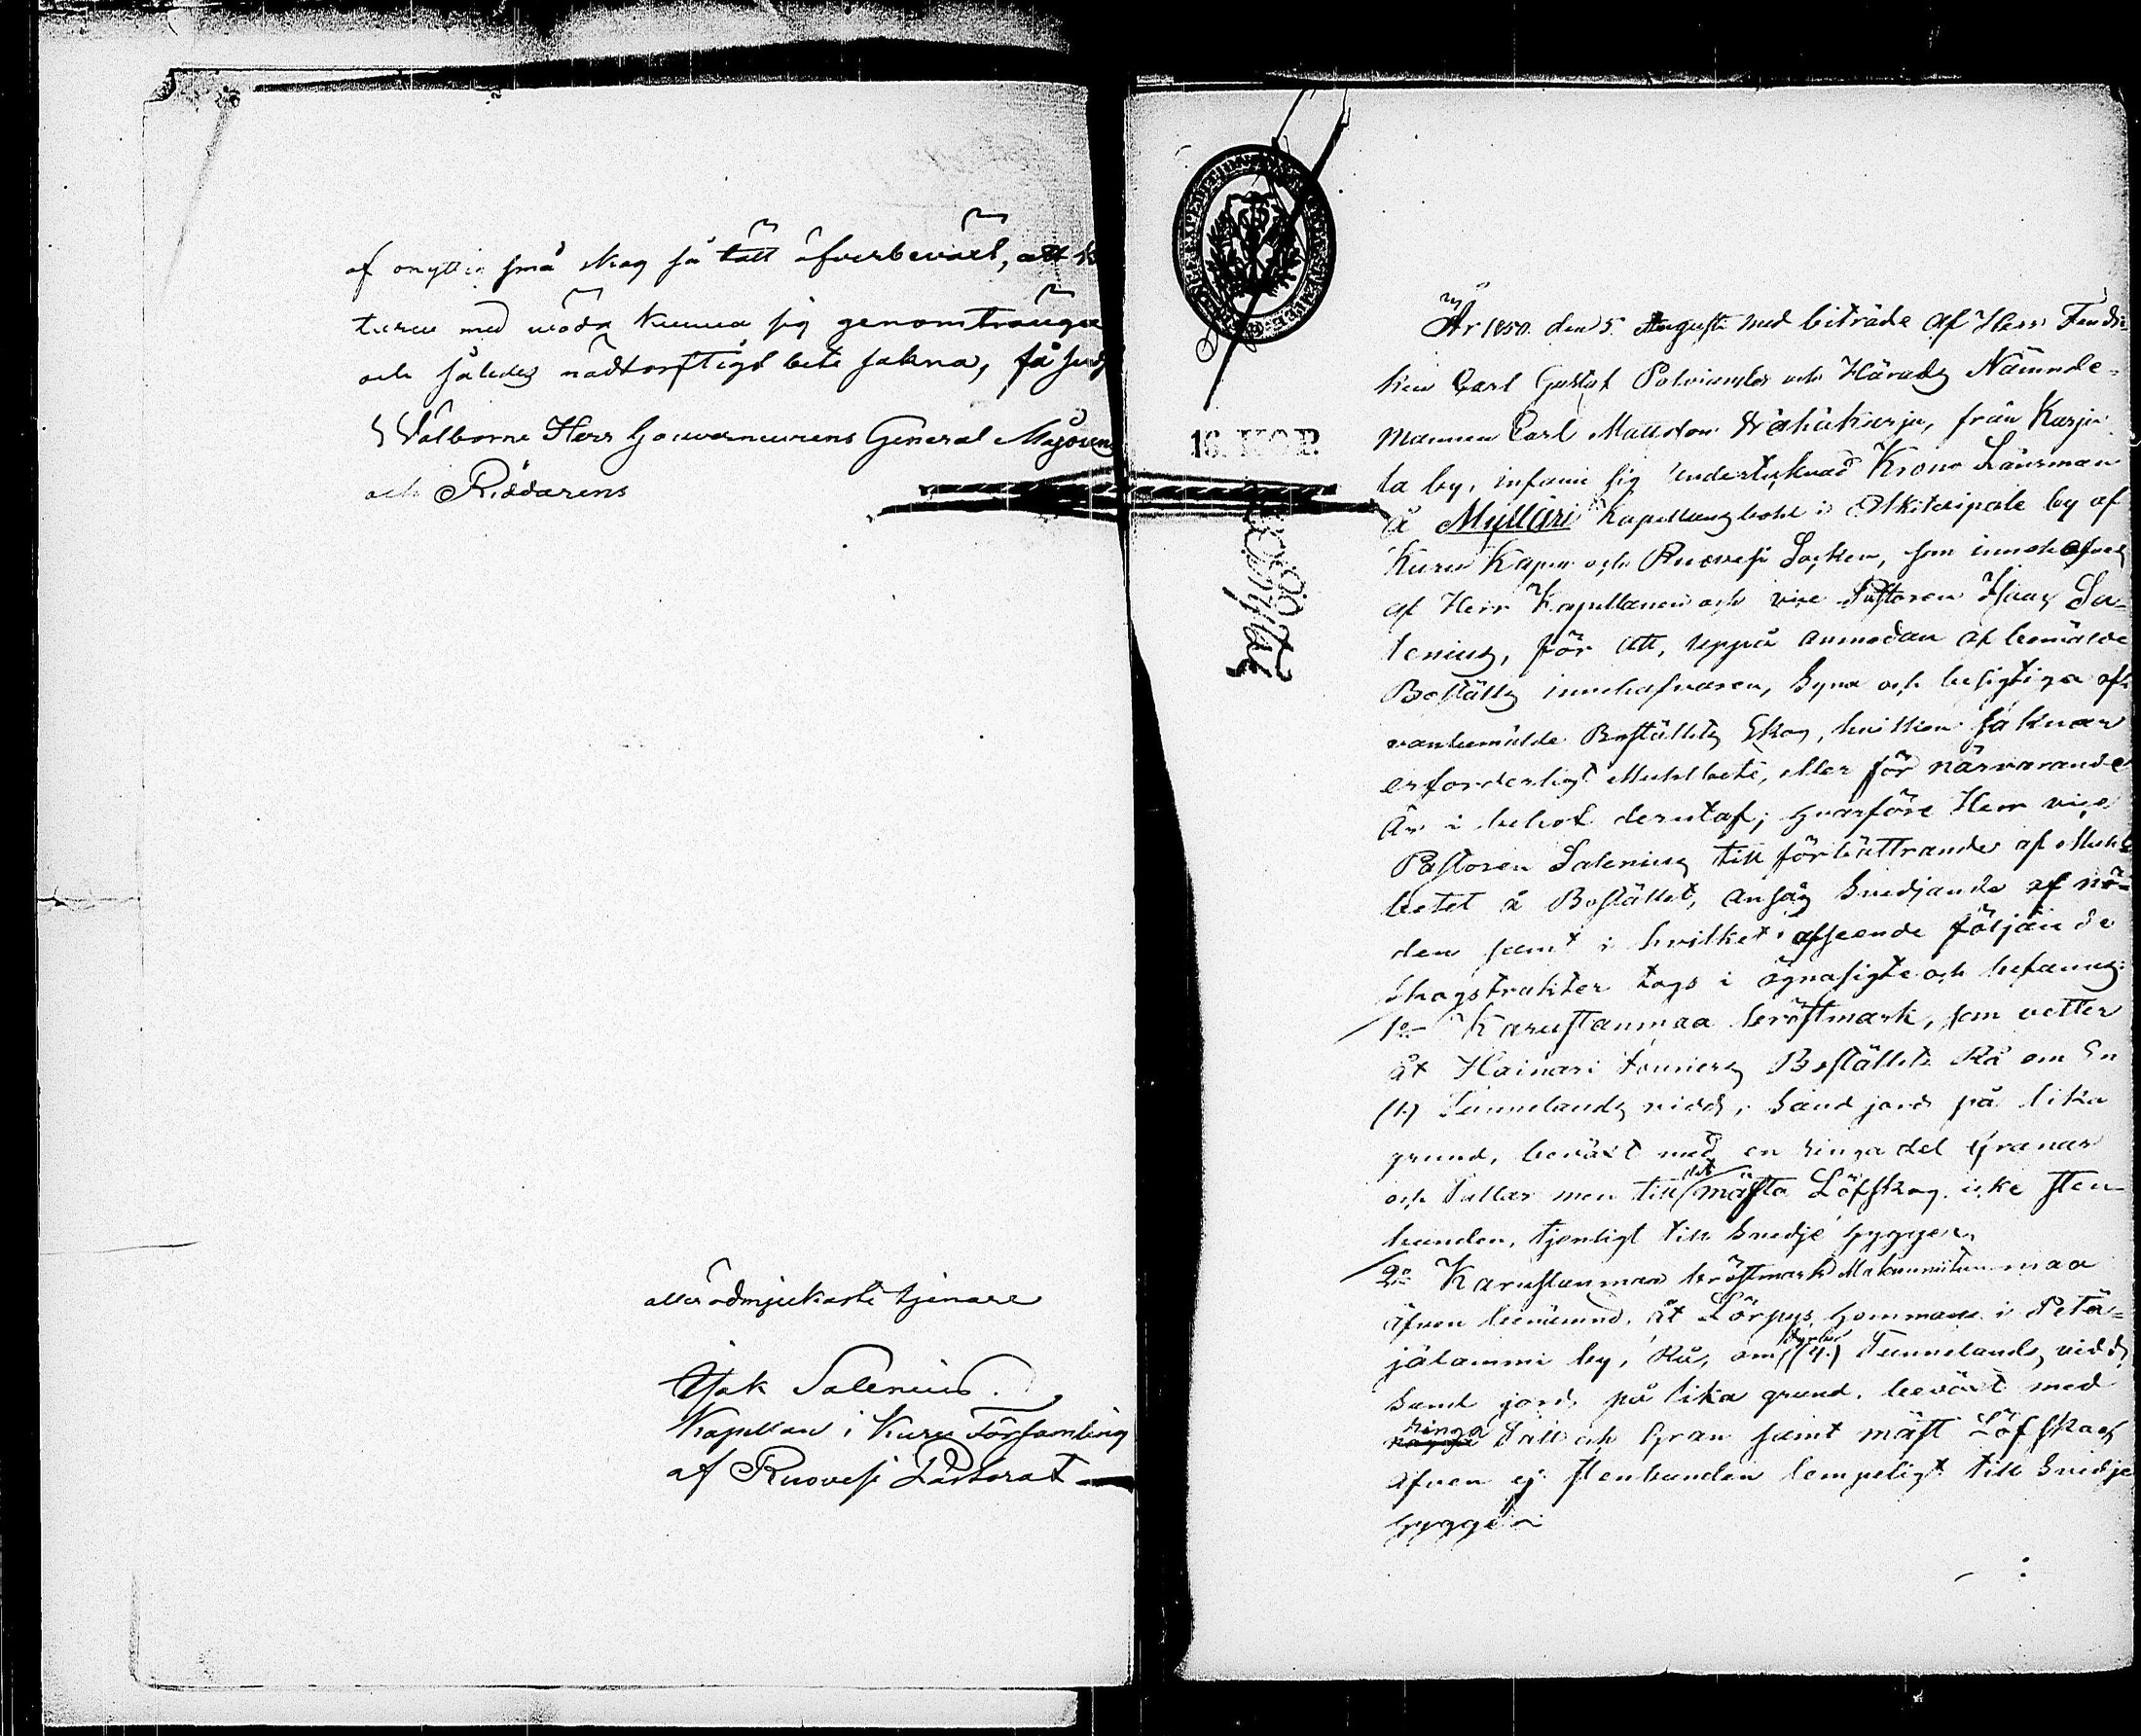 af onyttig små skog så tätt öfverbeväxt, att
turen med möda kunna sig genomtränga
och således nödtorftigt bete sakna, 
Välborne Herr Gouverneurens General Majoren
och Riddarens
allerödmjukaste tjenare
Isak Salenius.
Kapellan i Kuru Församling
af Ruovesi Pastorat
16. KOP.
År 1850. den 5 Augusti med biträde af Herr Fendri-
ken Carl Gustaf och Härads Nämnde-
mannen Carl Mattsson från Karja
la by, infann sig undertecknad Krono Länsman
å Mylläri Kapellansbohl i by af
Kuru Kapell och Ruovesi Socken, som innehafves
af Herr Kapellanen och vice Pastoren Isaac Sa-
lenius, för att, uppå anmodan af bemälde
Boställs innehafvaren, syna och besigtiga of-
vanbemälde Boställets Skog, hvilken saknar
erforderligt Muhlbete, eller för närvarande
är i behof derutaf; hvarföre Herr vice
Pastoren Salenius till förbättrande af Muhl
betet å Bostället, ansåg svedjande af nö-
den samt i hvilket afseende följande
skogstrakter togs i ögnasigte och befanns:
1o Karustanmaa kröftmark, som vetter
åt Hainari Boställets Rå om En
(1) Tunnelands vidd, Sand jord på lika
grund, beväxt med en ringa del Granar
och Tallar men till det mästa Löfskog icke sten-
bunden, tjenligt till svedje hygge.
2o Karustanmaa kröftmark maa
äfven benämnd, åt Lörpys hemmans i Petä-
jälammi by, Rå, om fyra (4.) Tunnelands vidd,
Sand jord på lika grund, beväxt med
ringa Tall och Gran samt mäst Löfskog
äfven ej stenbunden lempeligt till svedje
hygge